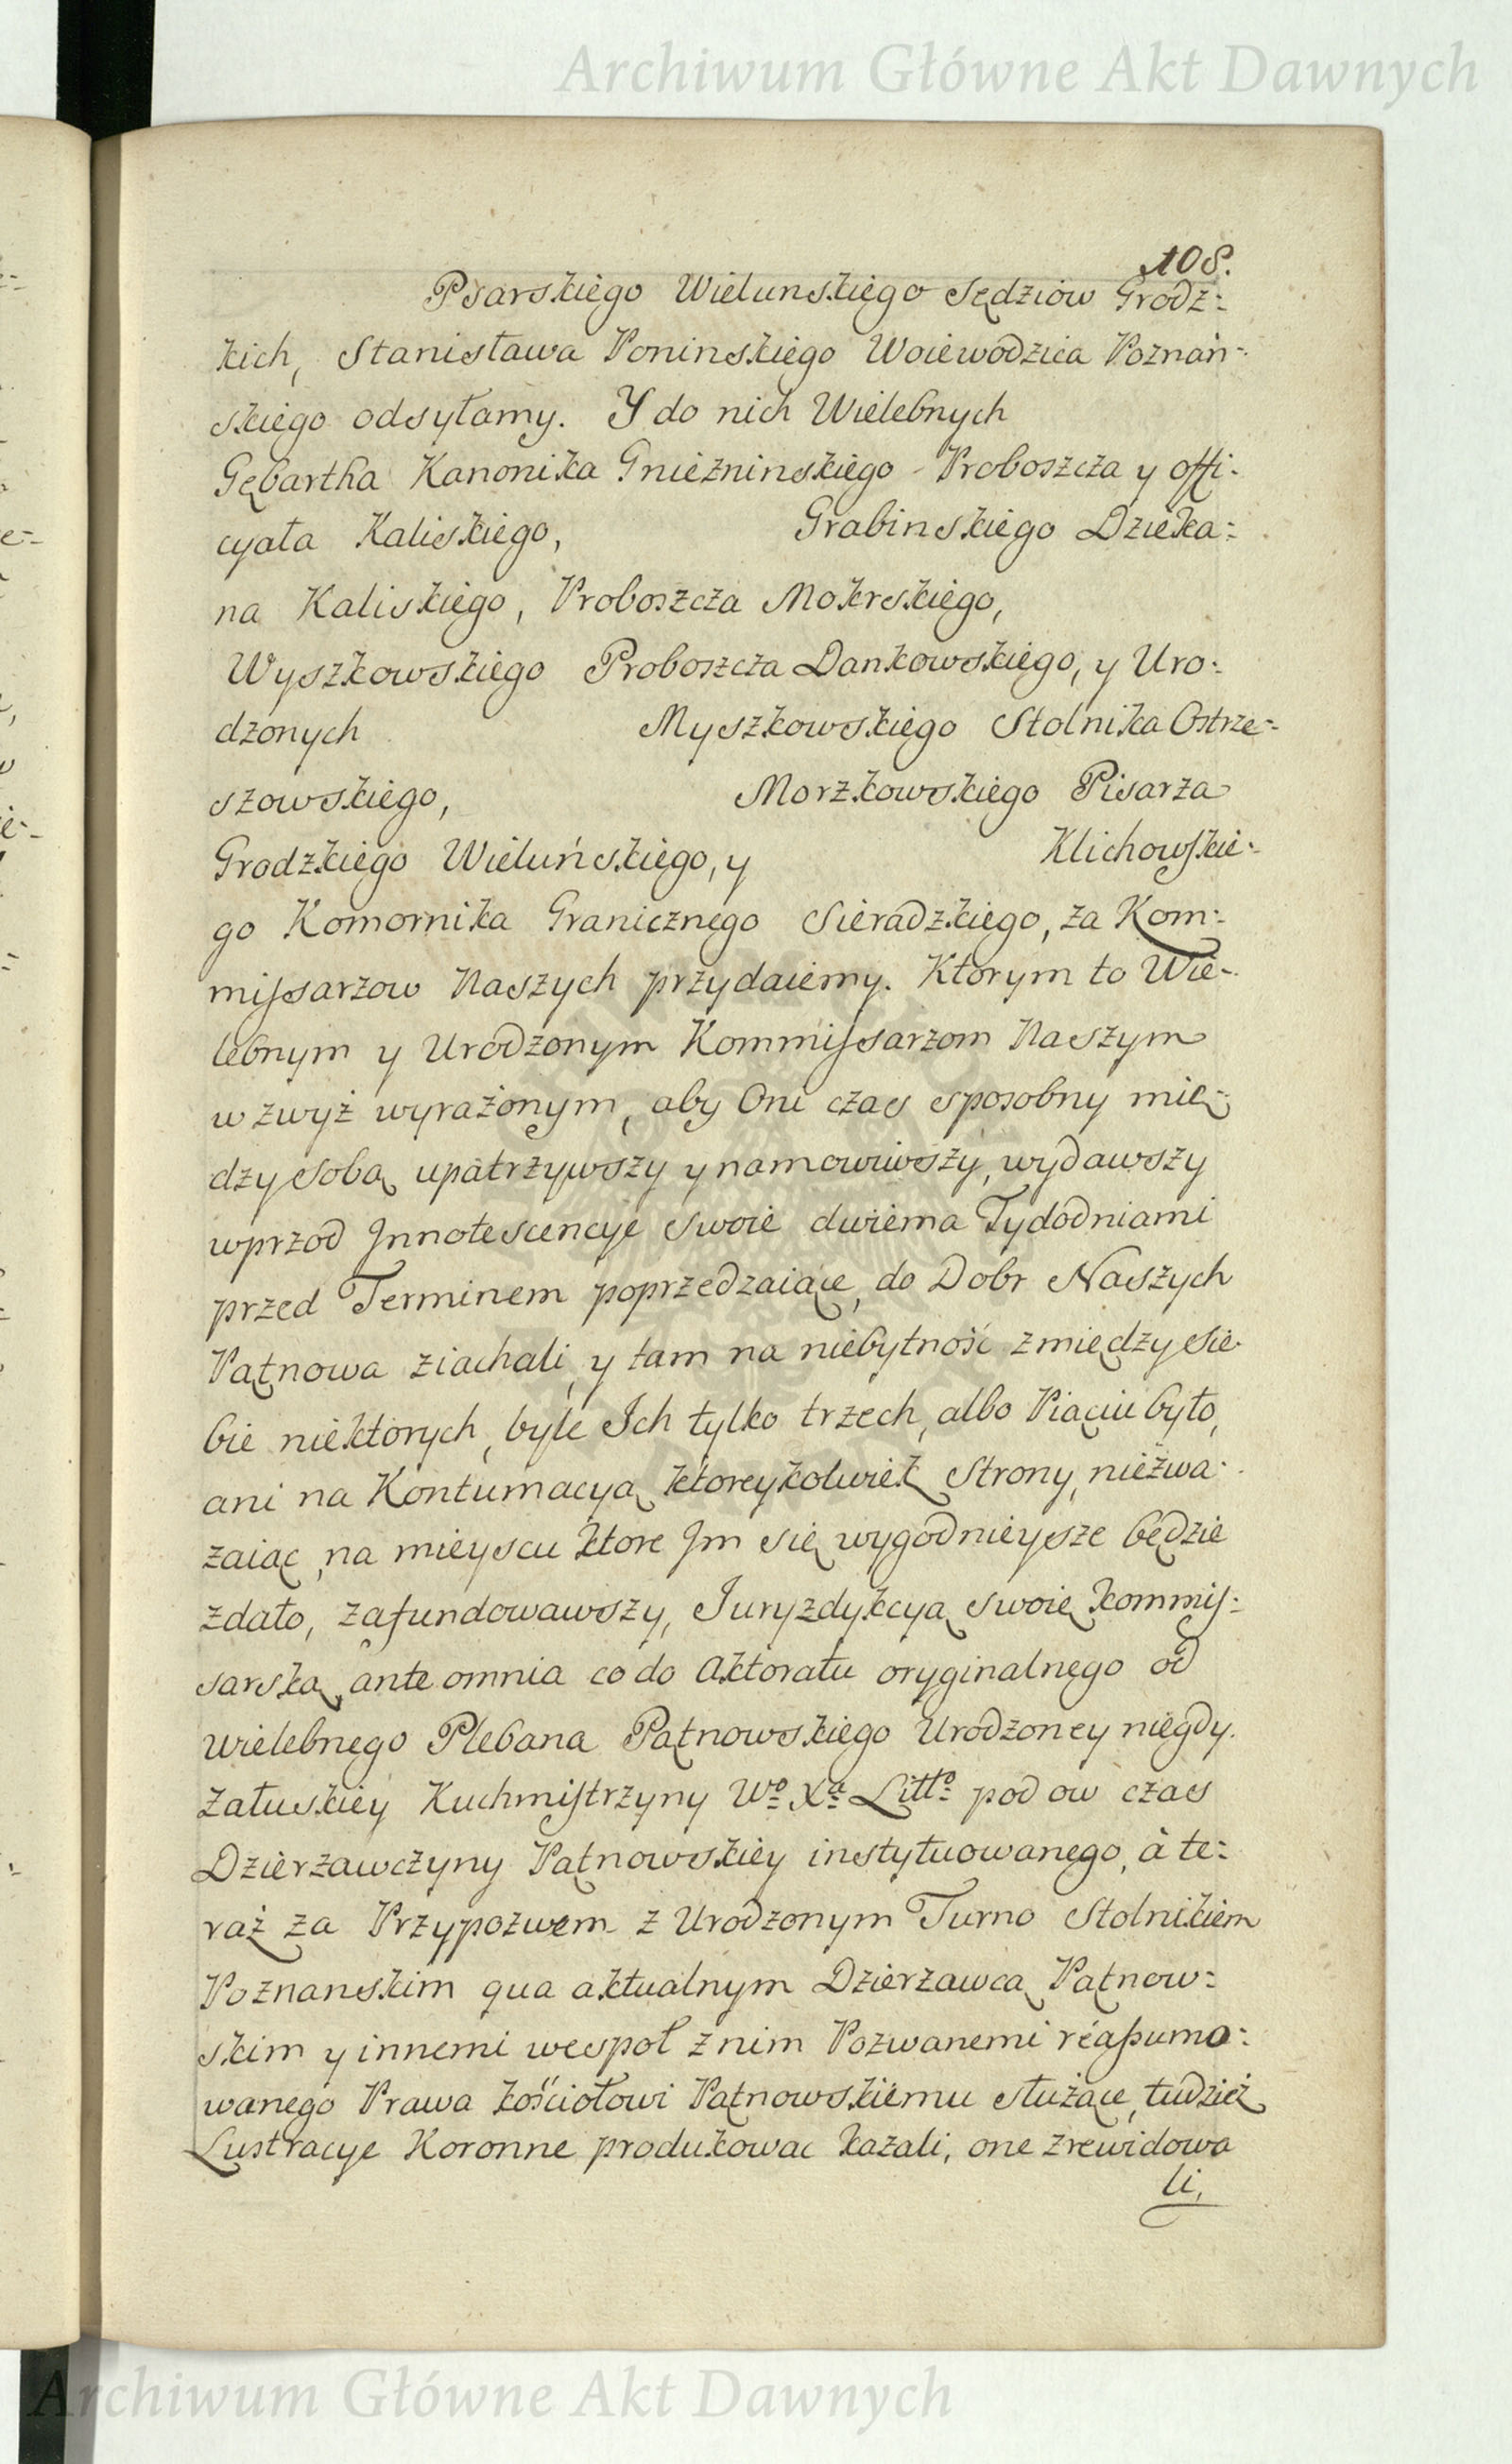 Archiwum Główne Akt Dawnych
108.
Psarskiego Wielunskiego Sędziow Grodz=
kich, Stanisława Poninskiego Woiewodzica Poznań=
skiego odsyłamy. Y do nich Wielebnych
Gębartha Kanonika Gnieżninskiego Proboszcża y offi=
cyała Kaliskiego, Grabinskiego Dzieka=
na Kaliskiego, Proboszcża Mokrskiego,
Wyszkowskiego Proboszcża Dankowskiego, y Uro=
dzonych Myszkowskiego Stolnika Ostrze=
szowskiego, Morzkowskiego Pisarza
Grodzkiego Wieluńskiego, y Klichowskie=
go Komornika Granicznego Sieradzkiego, za Kom=
missarzow Naszych przydaiemy. Ktorym to Wie=
lebnym y Urodzonym Kommissarzom Naszym
wzwyż wyrażonym, aby Oni czas sposobny mię=
dzy sobą upatrzywszy y namowiwszy, wydawszy
wprzod Innotescencye swoie dwiema Tydodniami
przed Terminem poprzedzaiące, do Dobr Naszych
Pątnowa ziachali, y tam na niebytność zmiędzy sie=
bie niektorych, byle Ich tylko trzech, albo Piąciu było,
ani na Kontumacyą ktoreykolwiek Strony, nieżwa=
żaiąc, na mieyscu ktore Im się wygodnieysze będzie
zdało, zafundowawszy, Iuryzdykcyą swoię kommis=
sarską, ante omnia co do Aktoratu oryginalnego od
wielebnego Plebana Pątnowskiego Urodzoney niegdy
Załuskiey Kuchmistrzyny Wo Xa Litto pod ow czas
Dzierzawczyny Pątnowskiey instytuowanego, à te=
raż za Przypozwem z Urodzonym Turno Stolnikiem
Poznanskim qua aktualnym Dzierzawcą Pątnow=
skim y innemi wespoł znim Pozwanemi reassumo=
wanego Prawa kościołowi Pątnowskiemu służące, tudzież
Lustracye Koronne produkowac kazali, one zrewidowa
li,
Archiwum Główne Akt Dawnych